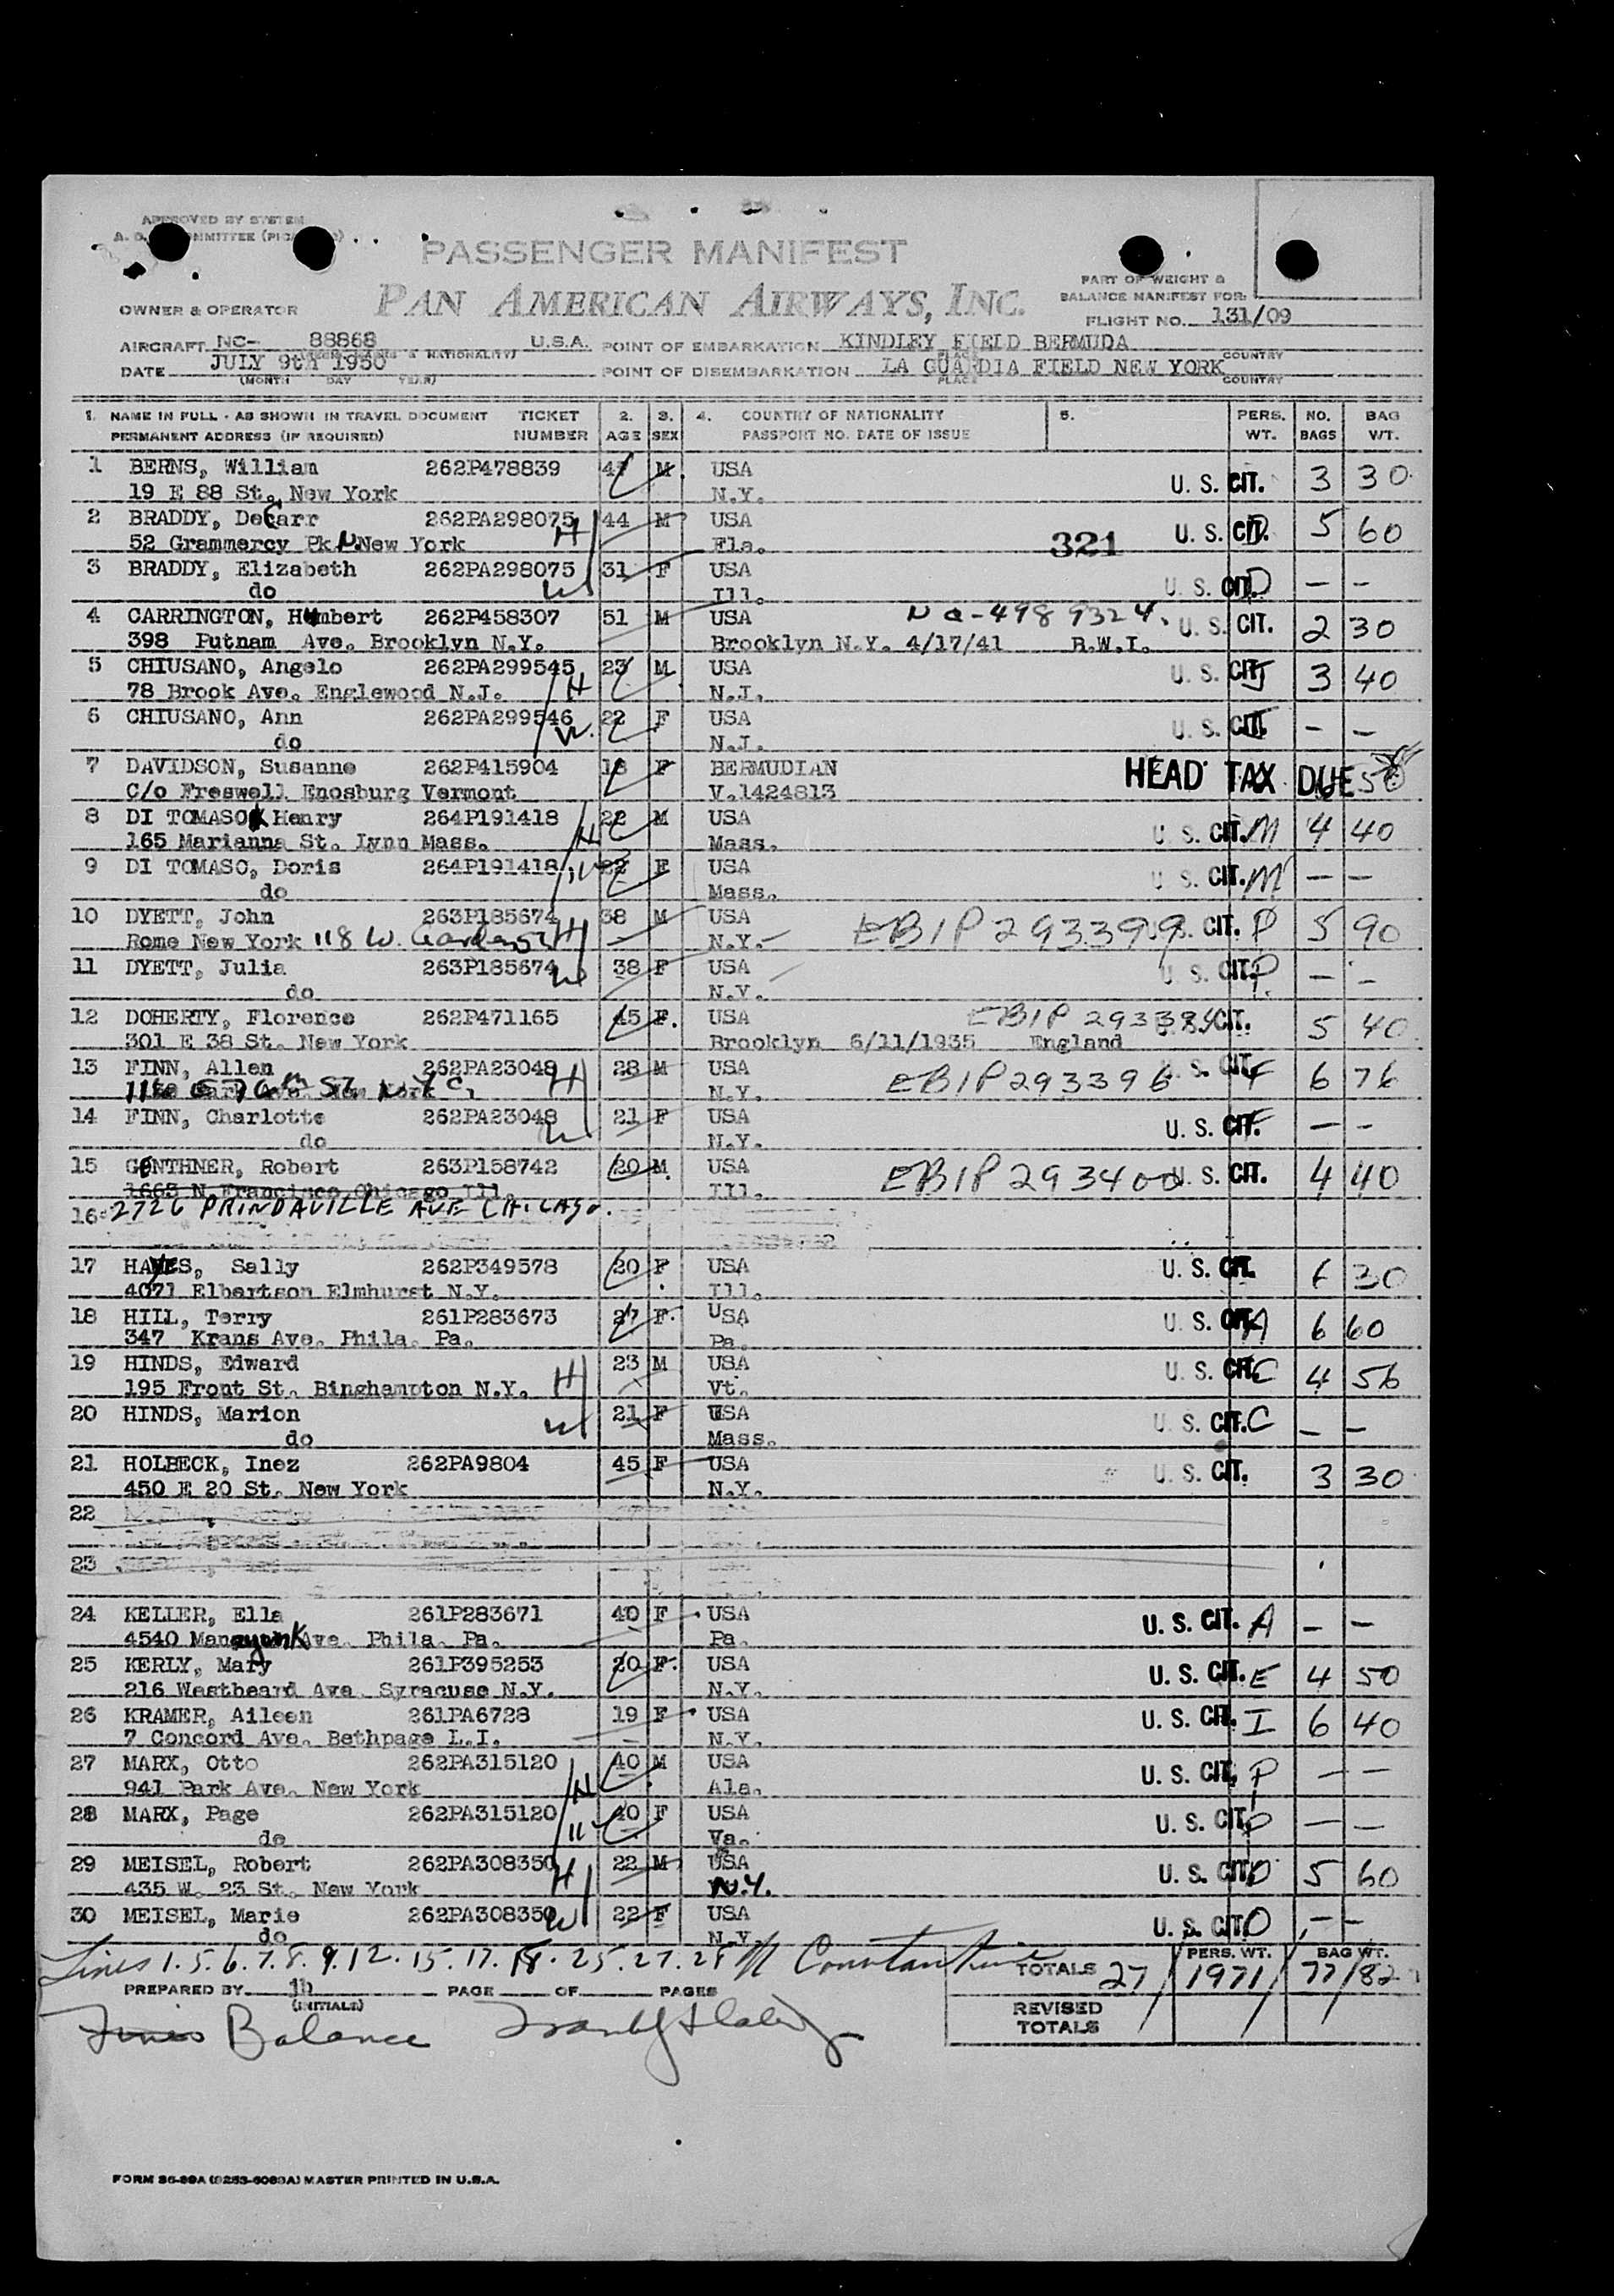 APPROVED BY SYSTEM
PASSENGER MANIFEST
PAN AMERICAN AIRWAYS, INC.
PART OF WEIGHT &
BALANCE MANIFEST FOR:
OWNER & OPERATOR
FLIGHT NO. 131/09
AIRCRAFT NC- 88868 U.S.A. POINT OF EMBARKATION KINDLEY FIELD BERMUDA
PLACE COUNTRY
DATE JULY 9th 1950 POINT OF DISEMBARKATION LA GUARDIA FIELD NEW YORK
(MONTH DAY YEAR) PLACE COUNTRY
1. NAME IN FULL - AS SHOWN IN TRAVEL DOCUMENT TICKET 2. 3. 4. COUNTRY OF NATIONALITY 5. PERS. NO. BAG
PERMANENT ADDRESS (IF REQUIRED) NUMBER AGE SEX PASSPORT NO. DATE OF ISSUE WT. BAGS WT.
1 BERNS, William 262P478839 M USA U. S. CIT. 3 30
19 E 88 St. New York N.Y.
2 BRADDY, DeCarr 262PA298075 44 M USA 321 U. S. CIT. D 5 60
52 Grammercy Pk N. New York H Fla.
3 BRADDY, Elizabeth 262PA298075 31 F USA U. S. CIT. D — —
do W Ill.
4 CARRINGTON, Humbert 262P458307 51 M USA No-4989324. U. S. CIT. 2 30
398 Putnam Ave. Brooklyn N.Y. Brooklyn N.Y. 4/17/41 B.W.I.
5 CHIUSANO, Angelo 262PA299545 23 M USA U. S. CIT. J 3 40
78 Brook Ave. Englewood N.J. H N.J.
6 CHIUSANO, Ann 262PA299546 22 F USA U. S. CIT. J — —
do W. N.J.
7 DAVIDSON, Susanne 262P415904 18 F BERMUDIAN HEAD TAX DUE
C/o Freswell Enosburg Vermont V.1424813
8 DI TOMASO Henry 264P191418 22 M USA U. S. CIT. M 4 40
165 Marianna St. Lynn Mass. H Mass.
9 DI TOMASO, Doris 264P191418 22 F USA U. S. CIT. M — —
do W Mass.
10 DYETT, John 263P185674 38 M USA EBIP293399 U. S. CIT. P 5 90
Rome New York 118 W. Garden St H N.Y.
11 DYETT, Julia 263P185674 38 F USA U. S. CIT. P. — —
do W N.Y.
12 DOHERTY, Florence 262P471165 45 F. USA EBIP 293394 U. S. CIT. 5 40
301 E 38 St. New York Brooklyn 6/11/1935 England
13 FINN, Allen 262PA23048 28 M USA EBIP293396 U. S. CIT. F 6 76
116 E 76th St. N.Y.C. H N.Y.
14 FINN, Charlotte 262PA23048 21 F USA U. S. CIT. F — —
do W N.Y.
15 GENTHNER, Robert 263P158742 20 M USA EBIP293400 U. S. CIT. 4 40
1663 N Francisco Chicago Ill. Ill.
16 2726 PRINDAVILLE AVE CHICAGO.
17 HAYES, Sally 262P349578 20 F USA U. S. CIT. 6 30
4071 Elbertson Elmhurst N.Y. Ill.
18 HILL, Terry 261P283673 27 F. USA U. S. CIT. A 6 60
347 Krans Ave. Phila. Pa. Pa.
19 HINDS, Edward 23 M USA U. S. CIT. C 4 56
195 Front St. Binghampton N.Y. H Vt.
20 HINDS, Marion 21 F USA U. S. CIT. C — —
do W Mass.
21 HOLBECK, Inez 262PA9804 45 F USA U. S. CIT. 3 30
450 E 20 St. New York N.Y.
22
23
24 KELLER, Ella 261P283671 40 F USA U. S. CIT. A — —
4540 Manayunk Ave. Phila. Pa. Pa.
25 KERLY, Mary 261P395253 20 F. USA U. S. CIT. E 4 50
216 Westheard Ave. Syracuse N.Y. N.Y.
26 KRAMER, Aileen 261PA6728 19 F USA U. S. CIT. I 6 40
7 Concord Ave. Bethpage L.I. N.Y.
27 MARX, Otto 262PA315120 40 M USA U. S. CIT. P — —
941 Park Ave. New York H Ala.
28 MARX, Page 262PA315120 40 F USA U. S. CIT. P — —
do W Va.
29 MEISEL, Robert 262PA308350 22 M USA U. S. CIT. O 5 60
435 W. 23 St. New York H N.Y.
30 MEISEL, Marie 262PA308350 22 F USA U. S. CIT. O — —
do W N.Y.
Lines 1. 5. 6. 7. 8. 9. 12. 15. 17. 18. 25. 27. 28 PERS. WT. BAG WT.
TOTALS 27 1971 77/82
PREPARED BY (INITIALS) PAGE OF PAGES
REVISED
TOTALS
Lines Balance
FORM 86-89A (9253-6089A) MASTER PRINTED IN U.S.A.